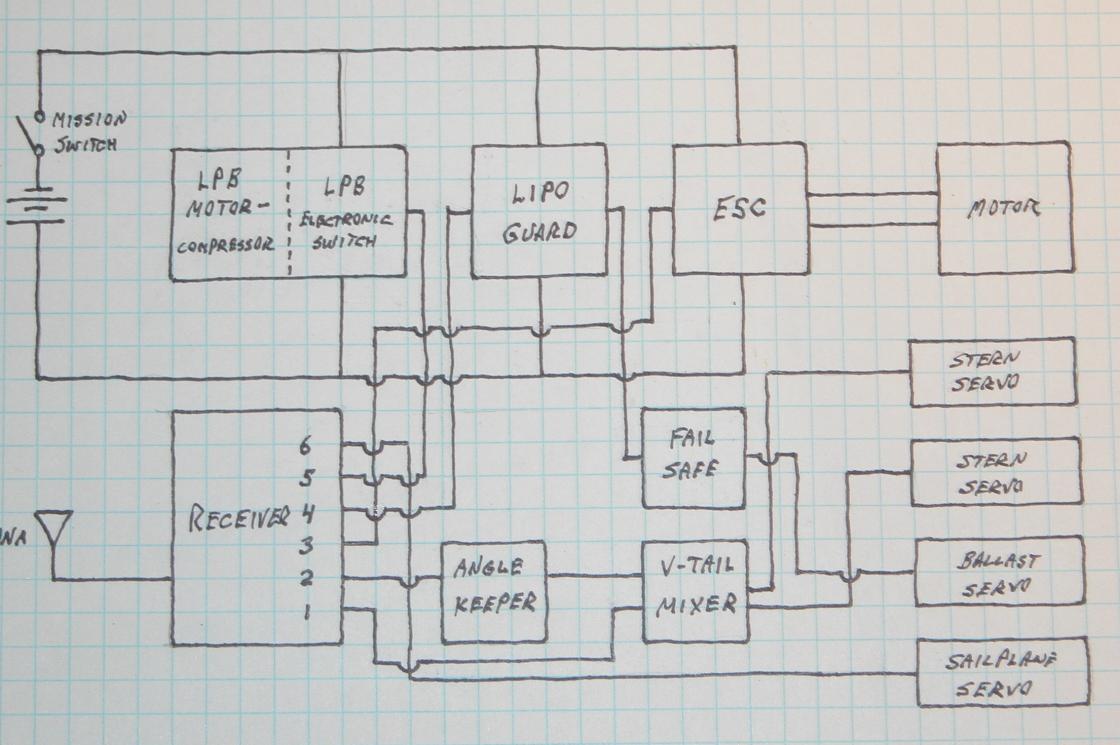 MISSION
SWITCH
LPB
MOTOR-
COMPRESSOR
LPB
ELECTRONIC
SWITCH
LIPO
GUARD
ESC
MOTOR
STERN
SERVO
FAIL
SAFE
STERN
SERVO
RECEIVER
6
5
4
3
2
1
NA
ANGLE
KEEPER
V-TAIL
MIXER
BALLAST
SERVO
SAILPLANE
SERVO